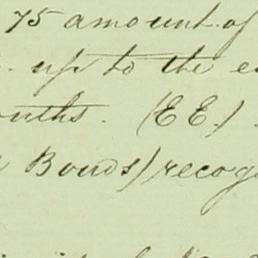 75 amount of
up to the e
onths. (EE).
Bonds) recog